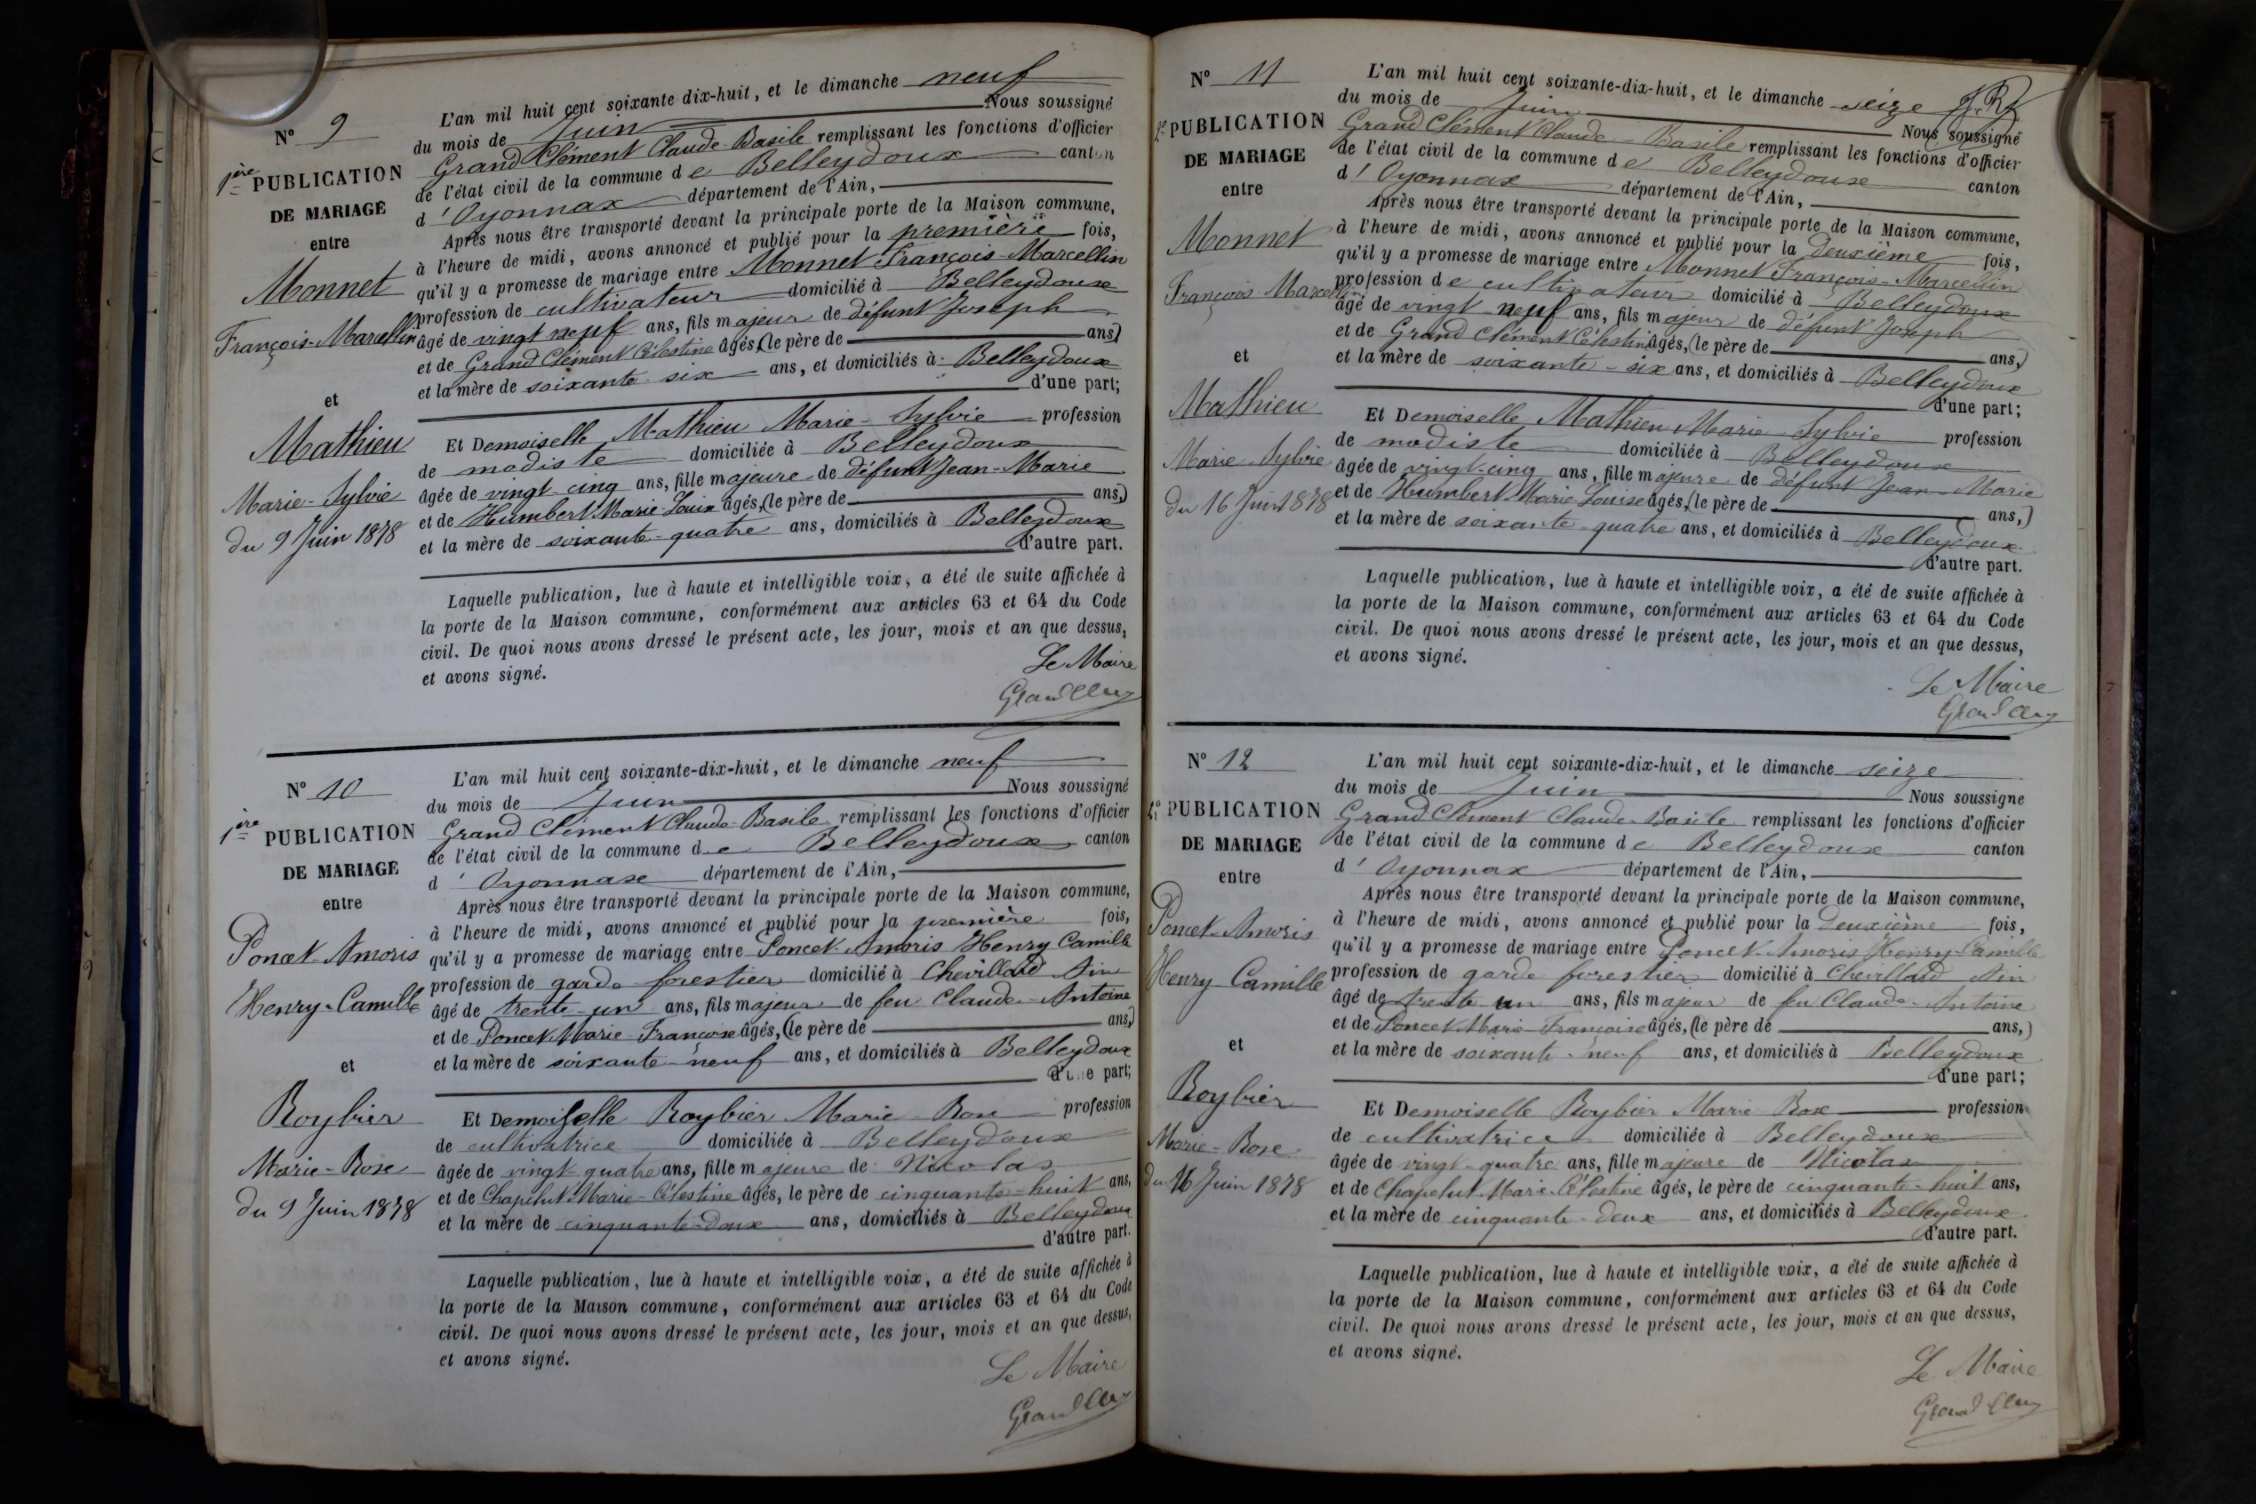 N° 9
1ère PUBLICATION
DE MARIAGE
entre
Monnet
François-Marcellin
et
Mathieu
Marie-Sylvie
du 9 Juin 1878
L'an mil huit cent soixante dix-huit, et le dimanche neuf
du mois de Juin Nous soussigné
Grand Clément Claude-Basile remplissant les fonctions d'officier
de l'état civil de la commune de Belleydoux canton
d'Oyonnax département de l'Ain,
Après nous être transporté devant la principale porte de la Maison commune,
à l'heure de midi, avons annoncé et publié pour la première fois,
qu'il y a promesse de mariage entre Monnet François-Marcellin
profession de cultivateur domicilié à Belleydoux
âgé de vingt neuf ans, fils majeur de défunt Joseph
et de Grand Clément Célestine âgés, (le père de ans)
et la mère de soixante six ans, et domiciliés à Belleydoux
d'une part;
Et Demoiselle Mathieu Marie-Sylvie profession
de modiste domiciliée à Belleydoux
âgée de vingt cinq ans, fille majeure de défunt Jean-Marie
et de Humbert Marie Louise âgés, (le père de ans,)
et la mère de soixante-quatre ans, domiciliés à Belleydoux
d'autre part.
Laquelle publication, lue à haute et intelligible voix, a été de suite affichée à
la porte de la Maison commune, conformément aux articles 63 et 64 du Code
civil. De quoi nous avons dressé le présent acte, les jour, mois et an que dessus,
et avons signé.
Le Maire
N° 10
1ère PUBLICATION
DE MARIAGE
entre
Poncet-Amoris
Henry-Camille
et
Roybier
Marie-Rose
du 9 Juin 1878
L'an mil huit cent soixante-dix-huit, et le dimanche neuf
du mois de Juin Nous soussigné
Grand Clément Claude-Basile remplissant les fonctions d'officier
de l'état civil de la commune de Belleydoux canton
d'Oyonnax département de l'Ain,
Après nous être transporté devant la principale porte de la Maison commune,
à l'heure de midi, avons annoncé et publié pour la première fois,
qu'il y a promesse de mariage entre Poncet-Amoris Henry Camille
profession de garde forestier domicilié à Chevillard Ain
âgé de trente-un ans, fils majeur de feu Claude-Antoine
et de Poncet Marie-Françoise âgés, (le père de ans,)
et la mère de soixante-neuf ans, et domiciliés à Belleydoux
d'une part;
Et Demoiselle Roybier Marie-Rose profession
de cultivatrice domiciliée à Belleydoux
âgée de vingt quatre ans, fille majeure de Nicolas
et de Chapelut Marie-Célestine âgés, le père de cinquante-huit ans,
et la mère de cinquante-deux ans, domiciliés à Belleydoux
d'autre part.
Laquelle publication, lue à haute et intelligible voix, a été de suite affichée à
la porte de la Maison commune, conformément aux articles 63 et 64 du Code
civil. De quoi nous avons dressé le présent acte, les jour, mois et an que dessus,
et avons signé.
Le Maire
N° 11
2e PUBLICATION
DE MARIAGE
entre
Monnet
François Marcellin
et
Mathieu
Marie-Sylvie
du 16 Juin 1878
L'an mil huit cent soixante-dix-huit, et le dimanche seize
du mois de Juin Nous soussigné
Grand Clément Claude-Basile remplissant les fonctions d'officier
de l'état civil de la commune de Belleydoux canton
d'Oyonnax département de l'Ain,
Après nous être transporté devant la principale porte de la Maison commune,
à l'heure de midi, avons annoncé et publié pour la Deuxième fois,
qu'il y a promesse de mariage entre Monnet François-Marcellin
profession de cultivateur domicilié à Belleydoux
âgé de vingt-neuf ans, fils majeur de défunt Joseph
et de Grand Clément Célestine âgés, (le père de ans,)
et la mère de soixante-six ans, et domiciliés à Belleydoux
d'une part;
Et Demoiselle Mathieu Marie-Sylvie profession
de modiste domiciliée à Belleydoux
âgée de vingt-cinq ans, fille majeure de défunt Jean-Marie
et de Humbert Marie Louise âgés, (le père de ans,)
et la mère de soixante-quatre ans, et domiciliés à Belleydoux
d'autre part.
Laquelle publication, lue à haute et intelligible voix, a été de suite affichée à
la porte de la Maison commune, conformément aux articles 63 et 64 du Code
civil. De quoi nous avons dressé le présent acte, les jour, mois et an que dessus,
et avons signé.
Le Maire
N° 12
PUBLICATION
DE MARIAGE
entre
Poncet-Amoris
Henry-Camille
et
Roybier
Marie-Rose
du 16 Juin 1878
L'an mil huit cent soixante-dix-huit, et le dimanche seize
du mois de Juin Nous soussigné
Grand Clément Claude-Basile remplissant les fonctions d'officier
de l'état civil de la commune de Belleydoux canton
d'Oyonnax département de l'Ain,
Après nous être transporté devant la principale porte de la Maison commune,
à l'heure de midi, avons annoncé et publié pour la Deuxième fois,
qu'il y a promesse de mariage entre Poncet-Amoris Henry-Camille
profession de garde forestier domicilié à Chevillard Ain
âgé de trente un ans, fils majeur de feu Claude-Antoine
et de Poncet Marie-Françoise âgés, (le père de ans,)
et la mère de soixante-neuf ans, et domiciliés à Belleydoux
d'une part;
Et Demoiselle Roybier Marie Rose profession
de cultivatrice domiciliée à Belleydoux
âgée de vingt-quatre ans, fille majeure de Nicolas
et de Chapelut Marie-Célestine âgés, le père de cinquante-huit ans,
et la mère de cinquante-deux ans, et domiciliés à Belleydoux
d'autre part.
Laquelle publication, lue à haute et intelligible voix, a été de suite affichée à
la porte de la Maison commune, conformément aux articles 63 et 64 du Code
civil. De quoi nous avons dressé le présent acte, les jour, mois et an que dessus,
et avons signé.
Le Maire